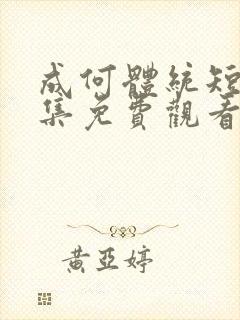 成何體統短
集免費觀看
黃亞婷